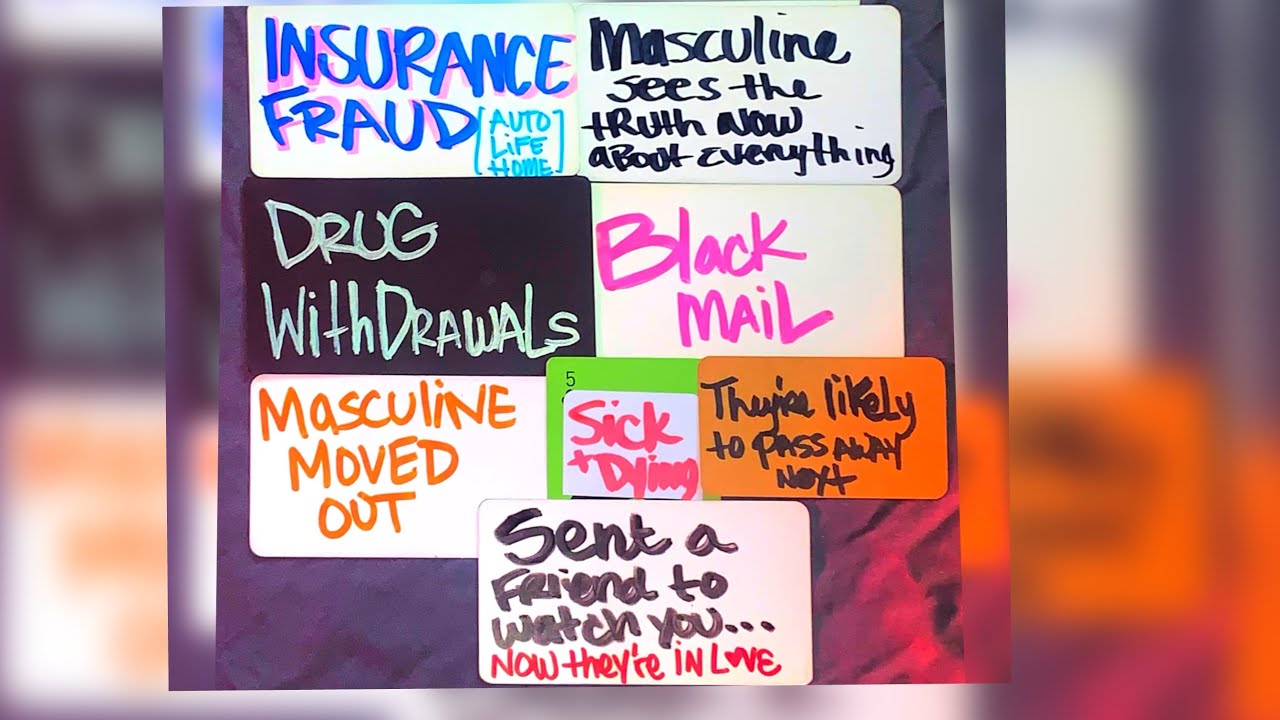 INSURANCE
FRAUD [AUTO
LiFE
HOME]
Masculine
sees the
tRuth NOW
aBOUt Everything
DRUG
WithDRAWALs
Black
MAiL
MASCULiNE
MOVED
OUT
5
Sick
+ Dying
They're likely
to pASS AWAY
Next
Sent a
FRiend to
watch you...
NOW they're iN LOVE